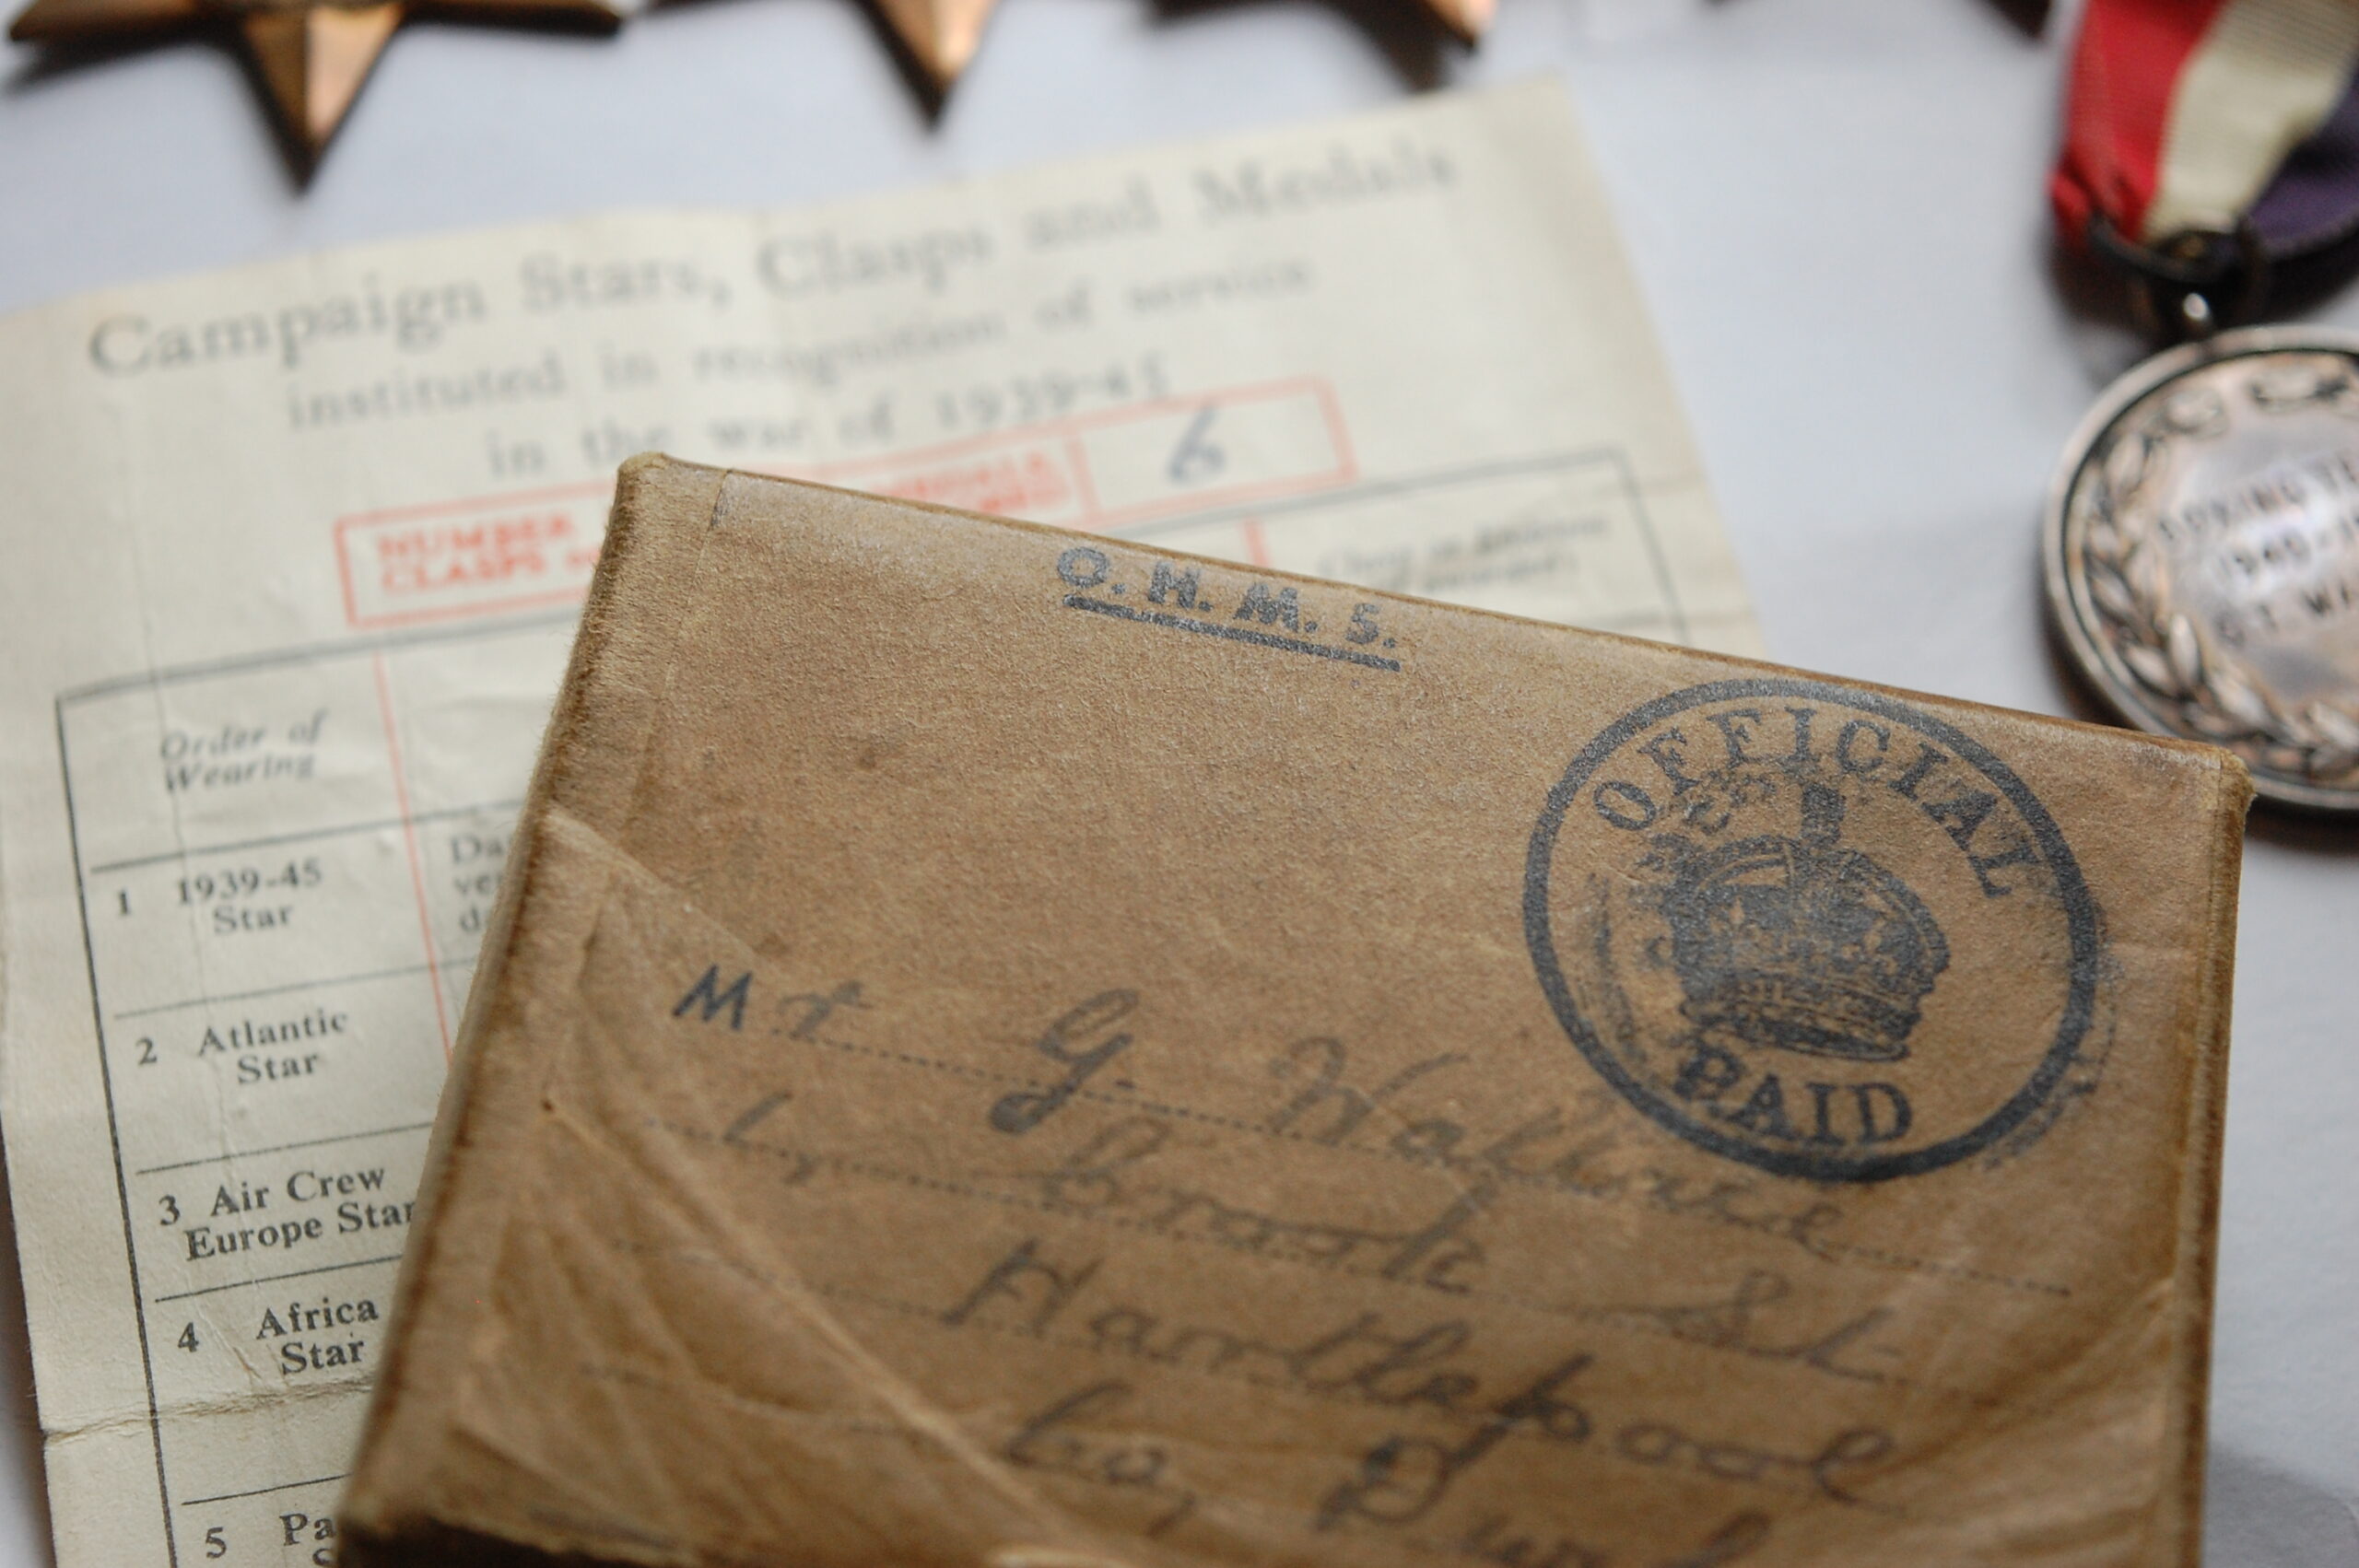 Campaign Stars, Clasps and Medals
instituted in recognition of service
in the war of 1939-45
NUMBER
CLASPS
6
Order of
Wearing
1 1939-45
Star
2 Atlantic
Star
3 Air Crew
Europe Star
4 Africa
Star
5 Pa
O.H.M.S.
OFFICIAL
PAID
Mr G. Wallace
Brook St
Hartlepool
Co, Dur
1940-